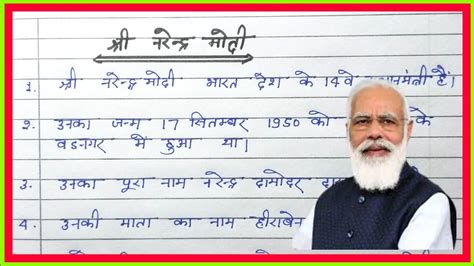 श्री नरेन्द्र मोदी
1. श्री नरेन्द्र मोदी भारत देश के 14वे हैं।
2. उनका जन्म 17 सितम्बर 1950 को के
वडनगर में हुआ था।
3. उनका पूरा नाम नरेन्द्र दामोदर
4. उनकी माता का नाम हीराबेन